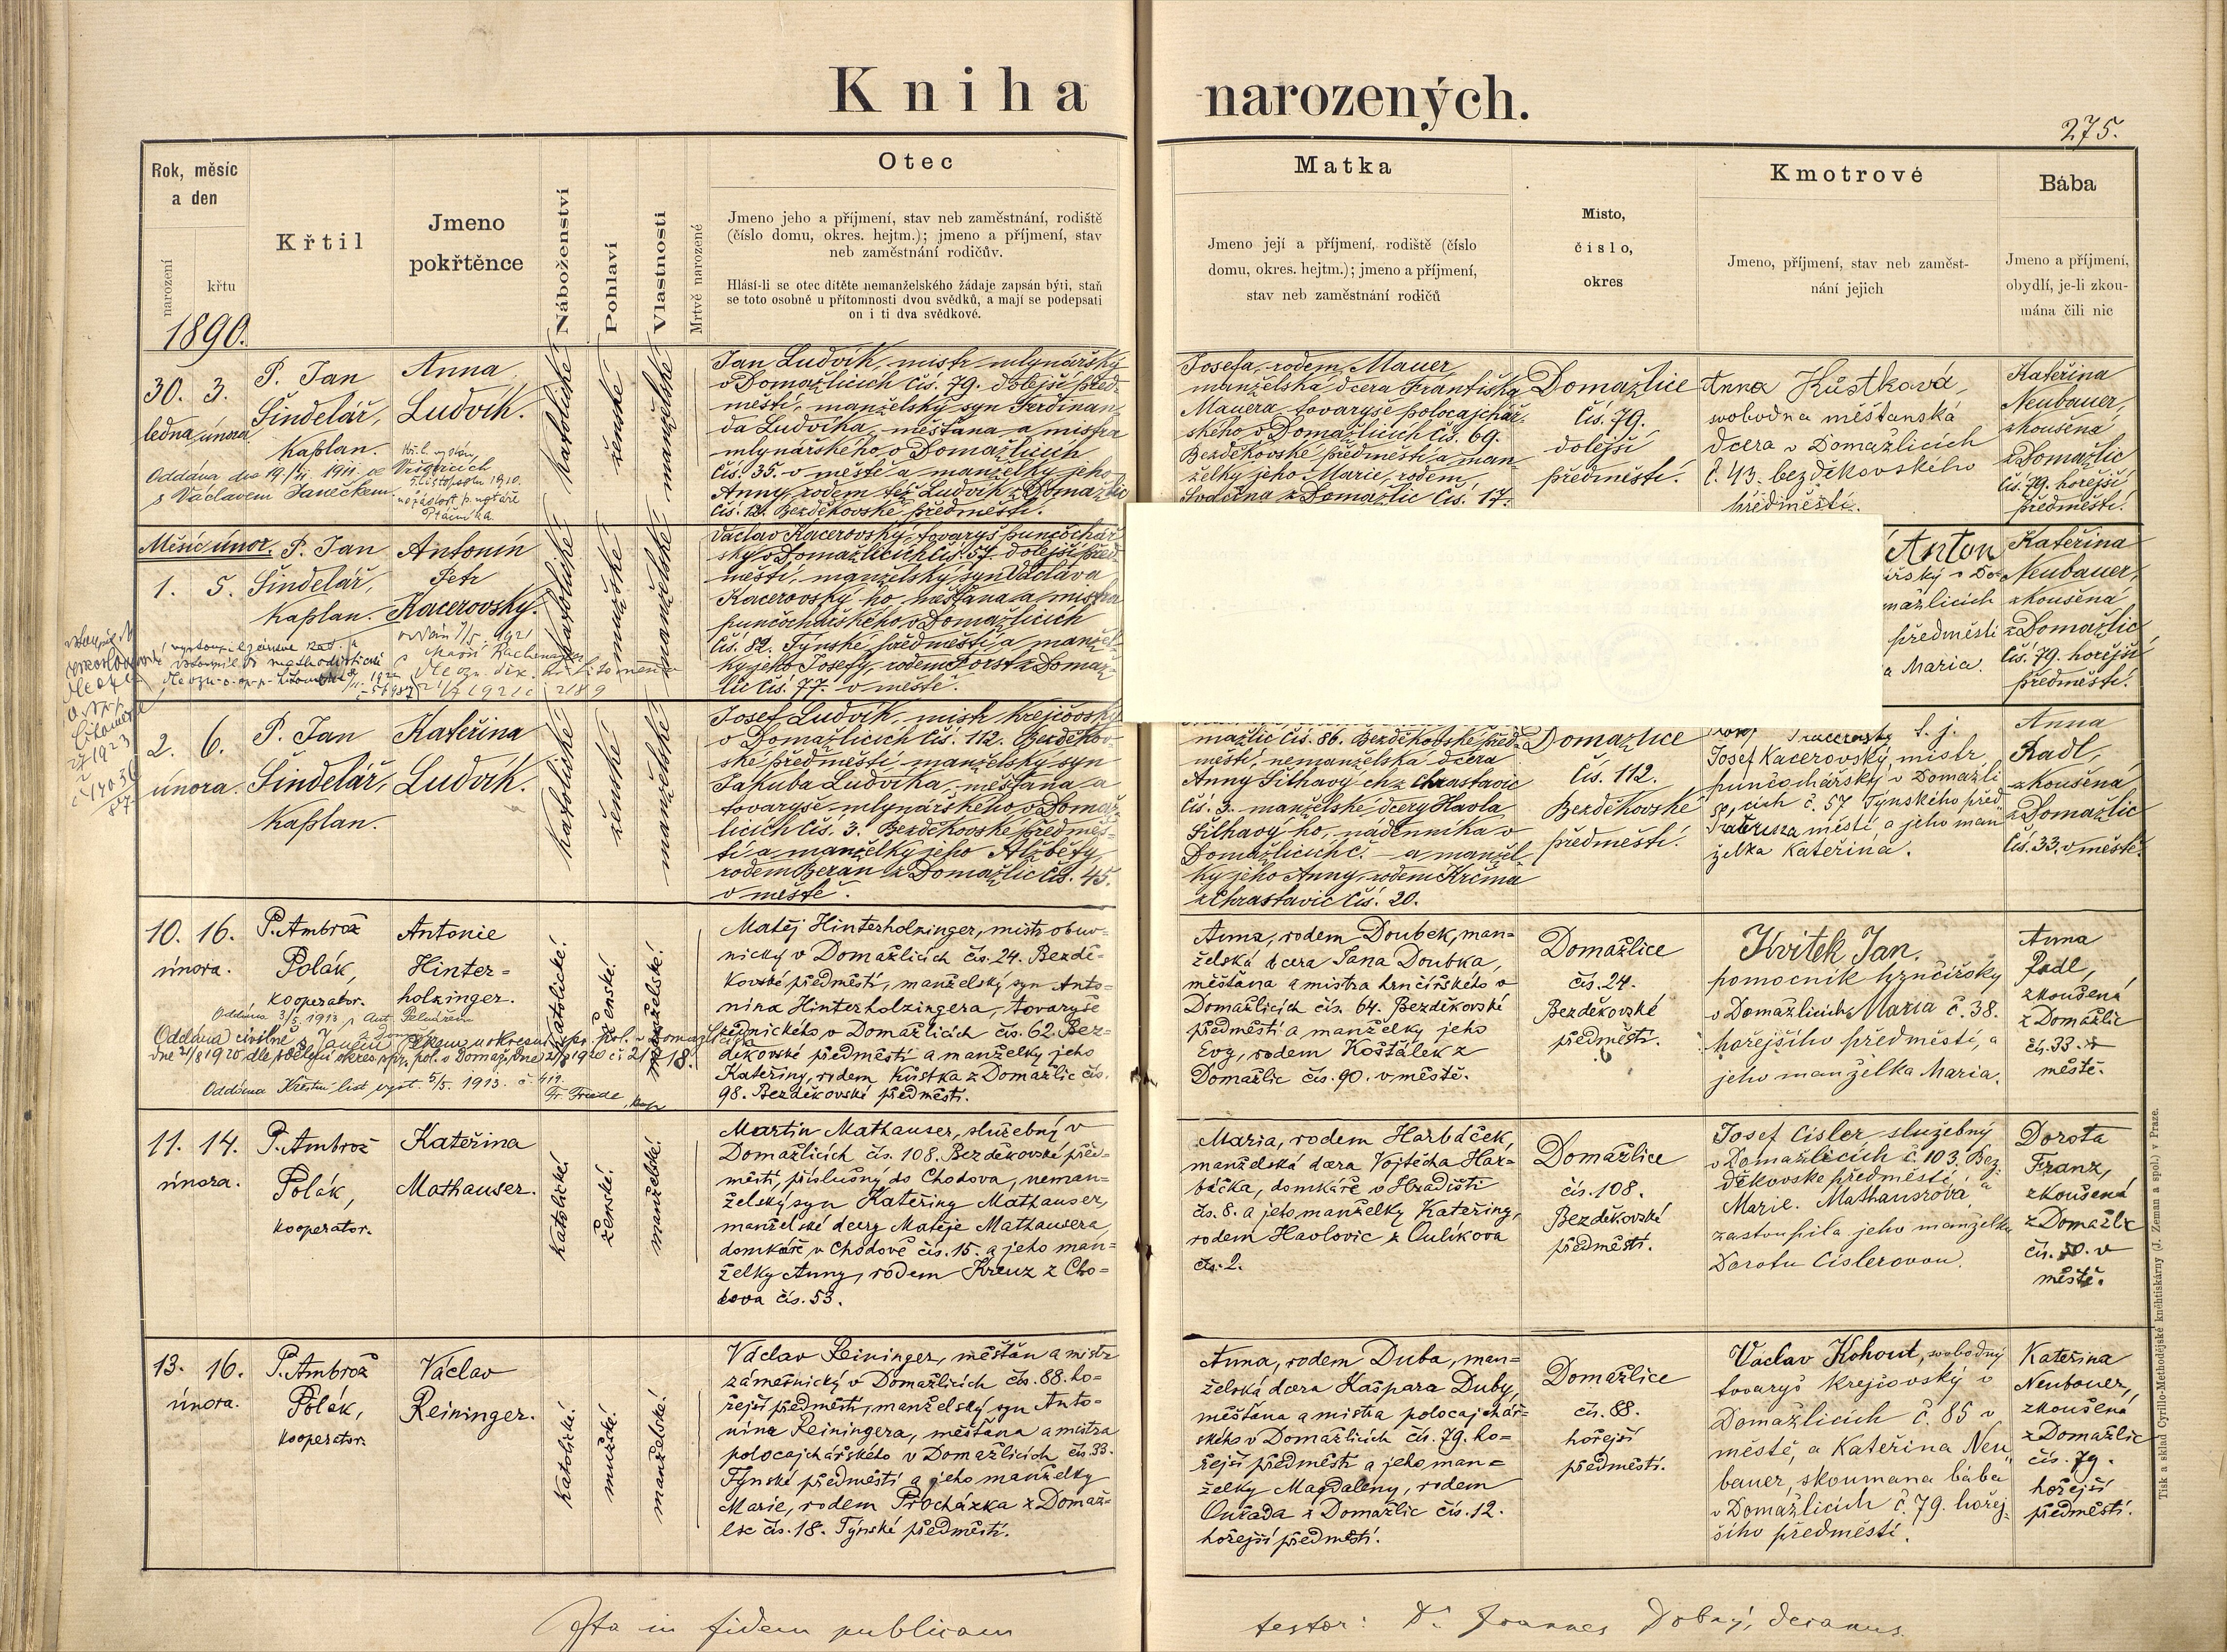 Kniha narozených.
275.
Rok, měsíc
a den
narození
křtu
1890.
Křtil
Jmeno
pokřtěnce
Náboženství
Pohlaví
Vlastnosti
Mrtvě narozené
Otec
Jmeno jeho a příjmení, stav neb zaměstnání, rodiště
(číslo domu, okres. hejtm.); jmeno a příjmení, stav
neb zaměstnání rodičův.
Hlásí-li se otec dítěte nemanželského žádaje zapsán býti, staň
se toto osobně u přítomnosti dvou svědků, a mají se podepsati
on i ti dva svědkové.
Matka
Jmeno její a příjmení, rodiště (číslo
domu, okres. hejtm.); jmeno a příjmení,
stav neb zaměstnání rodičů
Místo,
číslo,
okres
Kmotrové
Jmeno, příjmení, stav neb zaměst-
nání jejich
Bába
Jmeno a příjmení,
obydlí, je-li zkou-
mána čili nic
30. 3.
ledna února
P. Jan
Šindelář,
Kaplan.
Anna
Ludvík.
Oddána dne 19/11 1911 ve Vrš
s Václavem Janečkem
5. listopadu 1910.
katolické
ženské
manželské
Jan Ludvík, mistr mlynářský
v Domažlicích čís. 79. dolejší před-
městí, manželský syn Ferdinan-
da Ludvíka, měšťana a mistra
mlynářského v Domažlicích
čís. 35. v městě a manželky jeho
Anny, rodem též Ludvík z Domažlic
čís. 12. Bezděkovské předměstí.
Josefa, rodem Mauer,
manželská dcera Františka
Mauera, tovaryše polocajchář-
ského v Domažlicích čís. 69.
Bezděkovské předměstí a man-
želky jeho Marie, rodem
z Domažlic čís. 17.
Domažlice
čís. 79.
dolejší
předměstí.
Anna Kůstková,
svobodna měšťanská
dcera v Domažlicích
č. 43. bezděkovského
předměstí.
Kateřina
Neubauer,
zkoušená
z Domažlic
čís. 79. hořejší
předměstí.
Měsíc únor.
1. 5.
P. Jan
Šindelář,
Kaplan.
Antonín
Petr
Kacerovský.
katolické
mužské
manželské
Václav Kacerovský, tovaryš punčochář-
ský v Domažlicích čís. 57. dolejší před-
městí, manželský syn Václava
Kacerovský ho, měšťana a mistra
punčochářského v Domažlicích
čís. 82. Týnské předměstí a manžel-
ky jeho Josefy, rodem Forst z Domaž-
lic čís. 77. v městě.
Anton
ářský v Do-
mažlicích
předměstí
a Maria.
Kateřina
Neubauer,
zkoušená
z Domažlic
čís. 79. hořejší
předměstí.
2. 6.
února.
P. Jan
Šindelář,
Kaplan.
Kateřina
Ludvík.
katolické
ženské
manželské
Josef Ludvík, mistr krejčovský
v Domažlicích čís. 112. Bezděkov-
ské předměstí manželský syn
Jakuba Ludvíka, měšťana a
tovaryše mlynářského, v Domaž-
licích čís. 3. Bezděkovské předměs-
tí a manželky jeho Alžběty,
rodem Beran z Domažlic čís. 45.
v městě.
mažlic čís. 86. Bezděkovské před-
městí, nemanželská dcera
Anny Šilhavý ch z Chrastavic
čís. 3. manželské dcery Havla
Šilhavý ho, nádenníka v
Domažlicích č. — a manžel-
ky jeho Anny, rodem Krčma
z Chrastavic čís. 20.
Domažlice
čís. 112.
Bezděkovské
předměstí.
Josef Kacerovský, mistr
punčochářský v Domažli
cích č. 57 Týnského před
městí, a jeho man
želka Kateřina.
Anna
Radl,
zkoušená
z Domažlic
čís. 33. v městě.
10. 16.
února.
P. Ambrož
Polák,
kooperator.
Antonie
Hinter-
holzinger.
Oddána 3/5. 1913 s Ant.
Oddána civilně s Janem
dne 21/8 1920 dle sdělení okres. spr. pol. v Domaž. dne 21/8 1920 č. 21218.
Oddána Křestní list vyst. 5/5. 1913. č. 419.
Fr. Friede, kap
katolické.
ženské.
manželské.
Matěj Hinterholzinger, mistr obuv-
nický v Domažlicích čís. 24. Bezdě-
kovské předměstí, manželský syn Anto-
nína Hinterholzingera, tovaryše
řednického v Domažlicích čís. 62. Bez-
děkovské předměstí a manželky jeho
Kateřiny, rodem Kůstka z Domažlic čís.
98. Bezděkovské předměstí.
Anna, rodem Doubek, man-
želská dcera Jana Doubka,
měšťana a mistra hrnčířského v
Domažlicích čís. 64. Bezděkovské
předměstí a manželky jeho
Evy, rodem Košťálek z
Domažlic čís. 90. v městě.
Domažlice
čís. 24.
Bezděkovské
předměstí.
Kvitek Jan.
pomocník hrnčířský
v Domažlicích Maria č. 38.
hořejšího předměstí, a
jeho manželka Maria.
Anna
Radl,
zkoušená
z Domažlic
čís. 33. v
městě.
11. 14.
února.
P. Ambrož
Polák,
kooperator.
Kateřina
Mathauser.
katolické.
ženské.
manželské.
Martin Mathauser, služebný v
Domažlicích čís. 108. Bezděkovské před-
městí, příslušný do Chodova, neman-
želský syn Kateřiny Mathauser,
manželské dcery Matěje Mathausera,
domkáře v Chodově čís. 15. a jeho man-
želky Anny, rodem Kreuz z Cho-
dova čís. 53.
Maria, rodem Harbáček,
manželská dcera Vojtěcha Har-
báčka, domkáře v Hradišti
čís. 8. a jeho manželky Kateřiny,
rodem Havlovic z Oulíkova
čís. 2.
Domažlice
čís. 108.
Bezděkovské
předměstí.
Josef Cisler, služebný
v Domažlicích č. 103. Bez-
děkovské předměstí a
Marie. Mathausrova
zastoupila jeho manželku
Dorotu Cislerovou.
Dorota
Franz,
zkoušená
z Domažlic
čís. 50. v
městě.
13. 16.
února.
P. Ambrož
Polák,
kooperator.
Václav
Reininger.
katolické.
mužské.
manželské.
Václav Reininger, měšťan a mistr
zámečnický v Domažlicích čís. 88. ho-
řejší předměstí, manželský syn Anto-
nína Reiningera, měšťana a mistra
polocajchářského v Domažlicích čís. 33.
Týnské předměstí a jeho manželky
Marie, rodem Procházka z Domaž-
lic čís. 18. Týnské předměstí.
Anna, rodem Duba, man-
želská dcera Kašpara Duby,
měšťana a mistra polocajchář-
ského v Domažlicích čís. 79. ho-
řejší předměstí a jeho man-
želky Magdaleny, rodem
Ouřada z Domažlic čís. 12.
hořejší předměstí.
Domažlice
čís. 88.
hořejší
předměstí.
Václav Kohout, svobodný
tovaryš krejčovský v
Domažlicích č. 85 v
městě, a Kateřina Neu
bauer, skoumana bába
v Domažlicích č. 79. hořej-
šího předměstí.
Kateřina
Neubauer,
zkoušená
z Domažlic
čís. 79.
hořejší
předměstí.
Ista in fidem publicam
testor: Dr. Joannes Dobrý, decanus.
Tisk a sklad Cyrillo-Methodějské knihtiskárny (J. Zeman a spol.) v Praze.